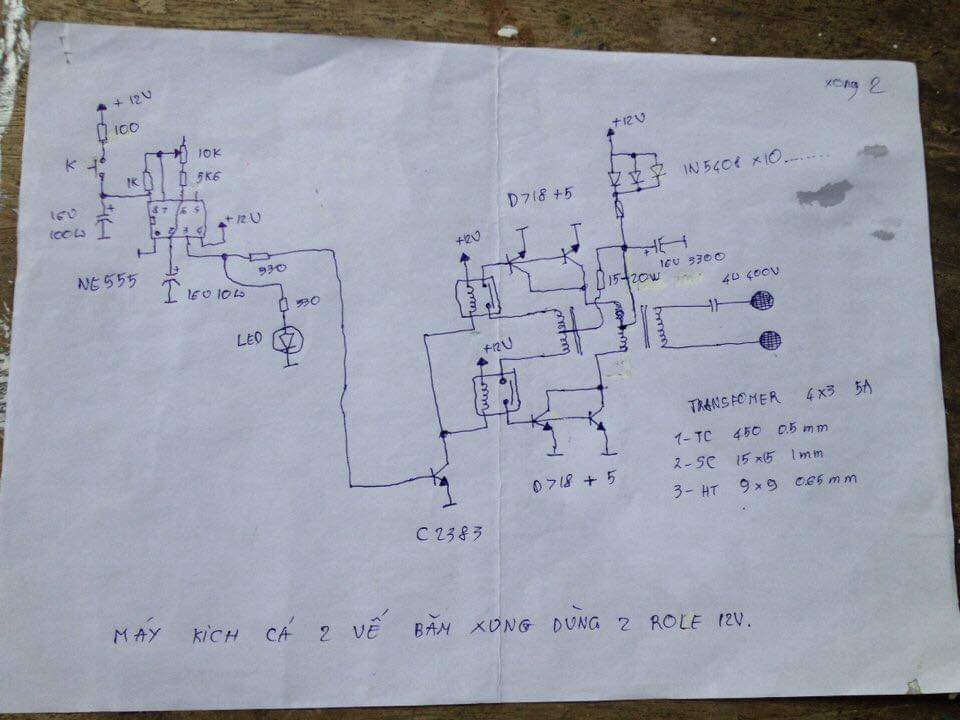 xong 2
+12V
100
K
10K
1K
5K6
16V
100µ
8 7 6 5
1 2 3 4
+12V
NE555
16V 10µ
330
330
LED
D718 + 5
+12V
+12V
+12V
1N5408 x10........
+ 16V 3300
15-20W
4µ 400V
D718 + 5
C2383
TRANSFOMER 4x3 5A
1- TC 450 0.5mm
2- SC 15x15 1mm
3- HT 9x9 0.65mm
MÁY KÍCH CÁ 2 VẾ BẮM XUNG DÙNG 2 ROLE 12V.